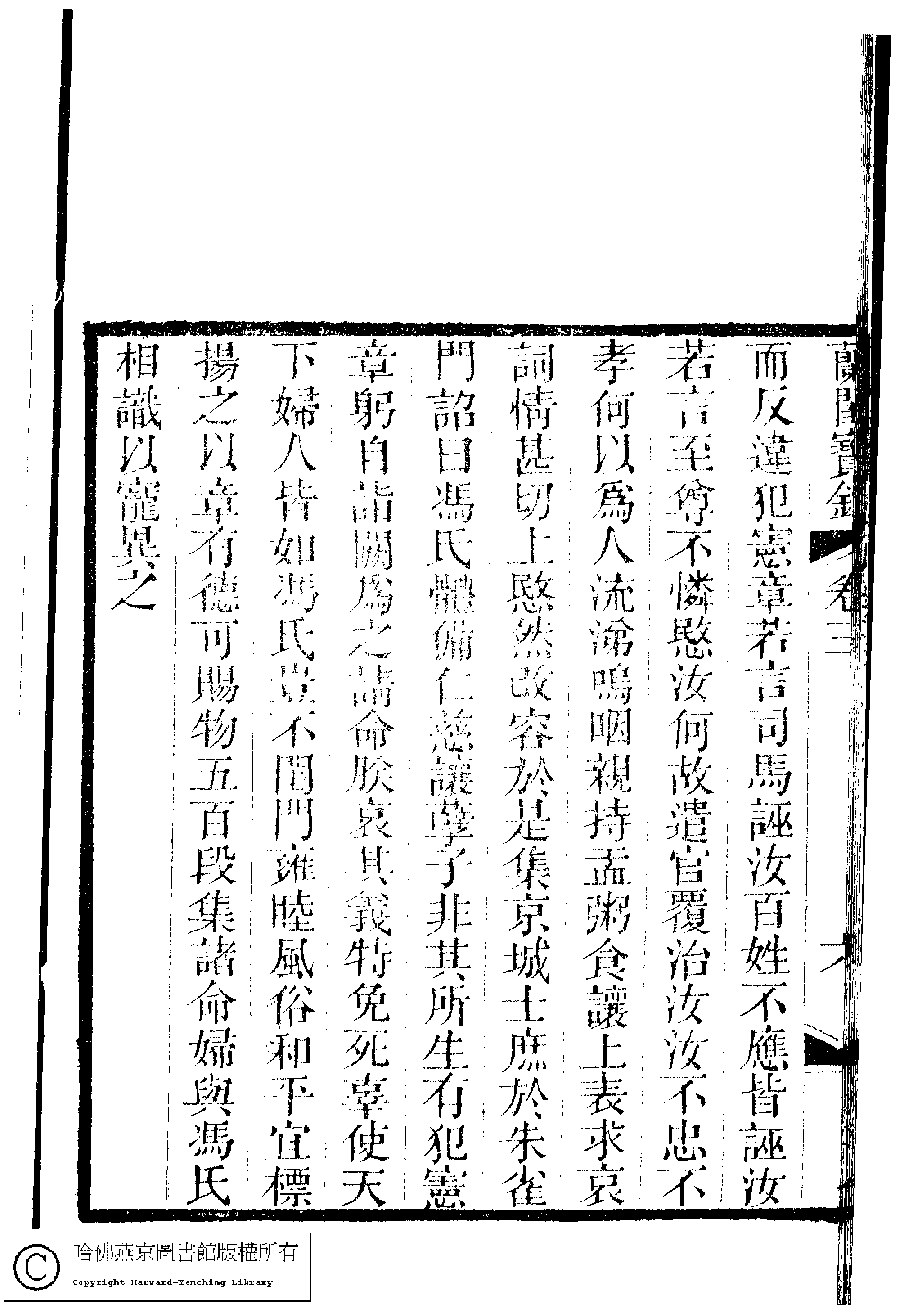 蘭閨寶錄 卷三
而反違犯憲章若言司馬誣汝百姓不應皆誣汝
若言至尊不憐愍汝何故遣官覆治汝汝不忠不
孝何以爲人流涕嗚咽親持盂粥食讓上表求哀
詞情甚切上愍然改容於是集京城士庶於朱雀
門詔曰馮氏體備仁慈讓孽子非其所生有犯憲
章躬自詣闕爲之請命朕哀其義特免死辜使天
下婦人皆如馮氏豈不閨門雍睦風俗和平宜標
揚之以章有德可賜物五百段集諸命婦與馮氏
相識以寵異之
哈佛燕京圖書館版權所有
Copyright Harvard-Yenching Library